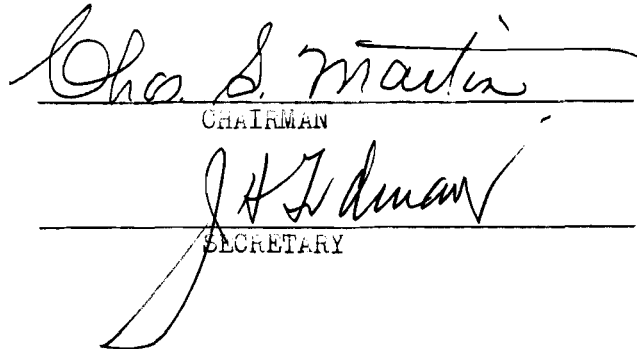 Chas. S. Martin
CHAIRMAN
J H
SECRETARY